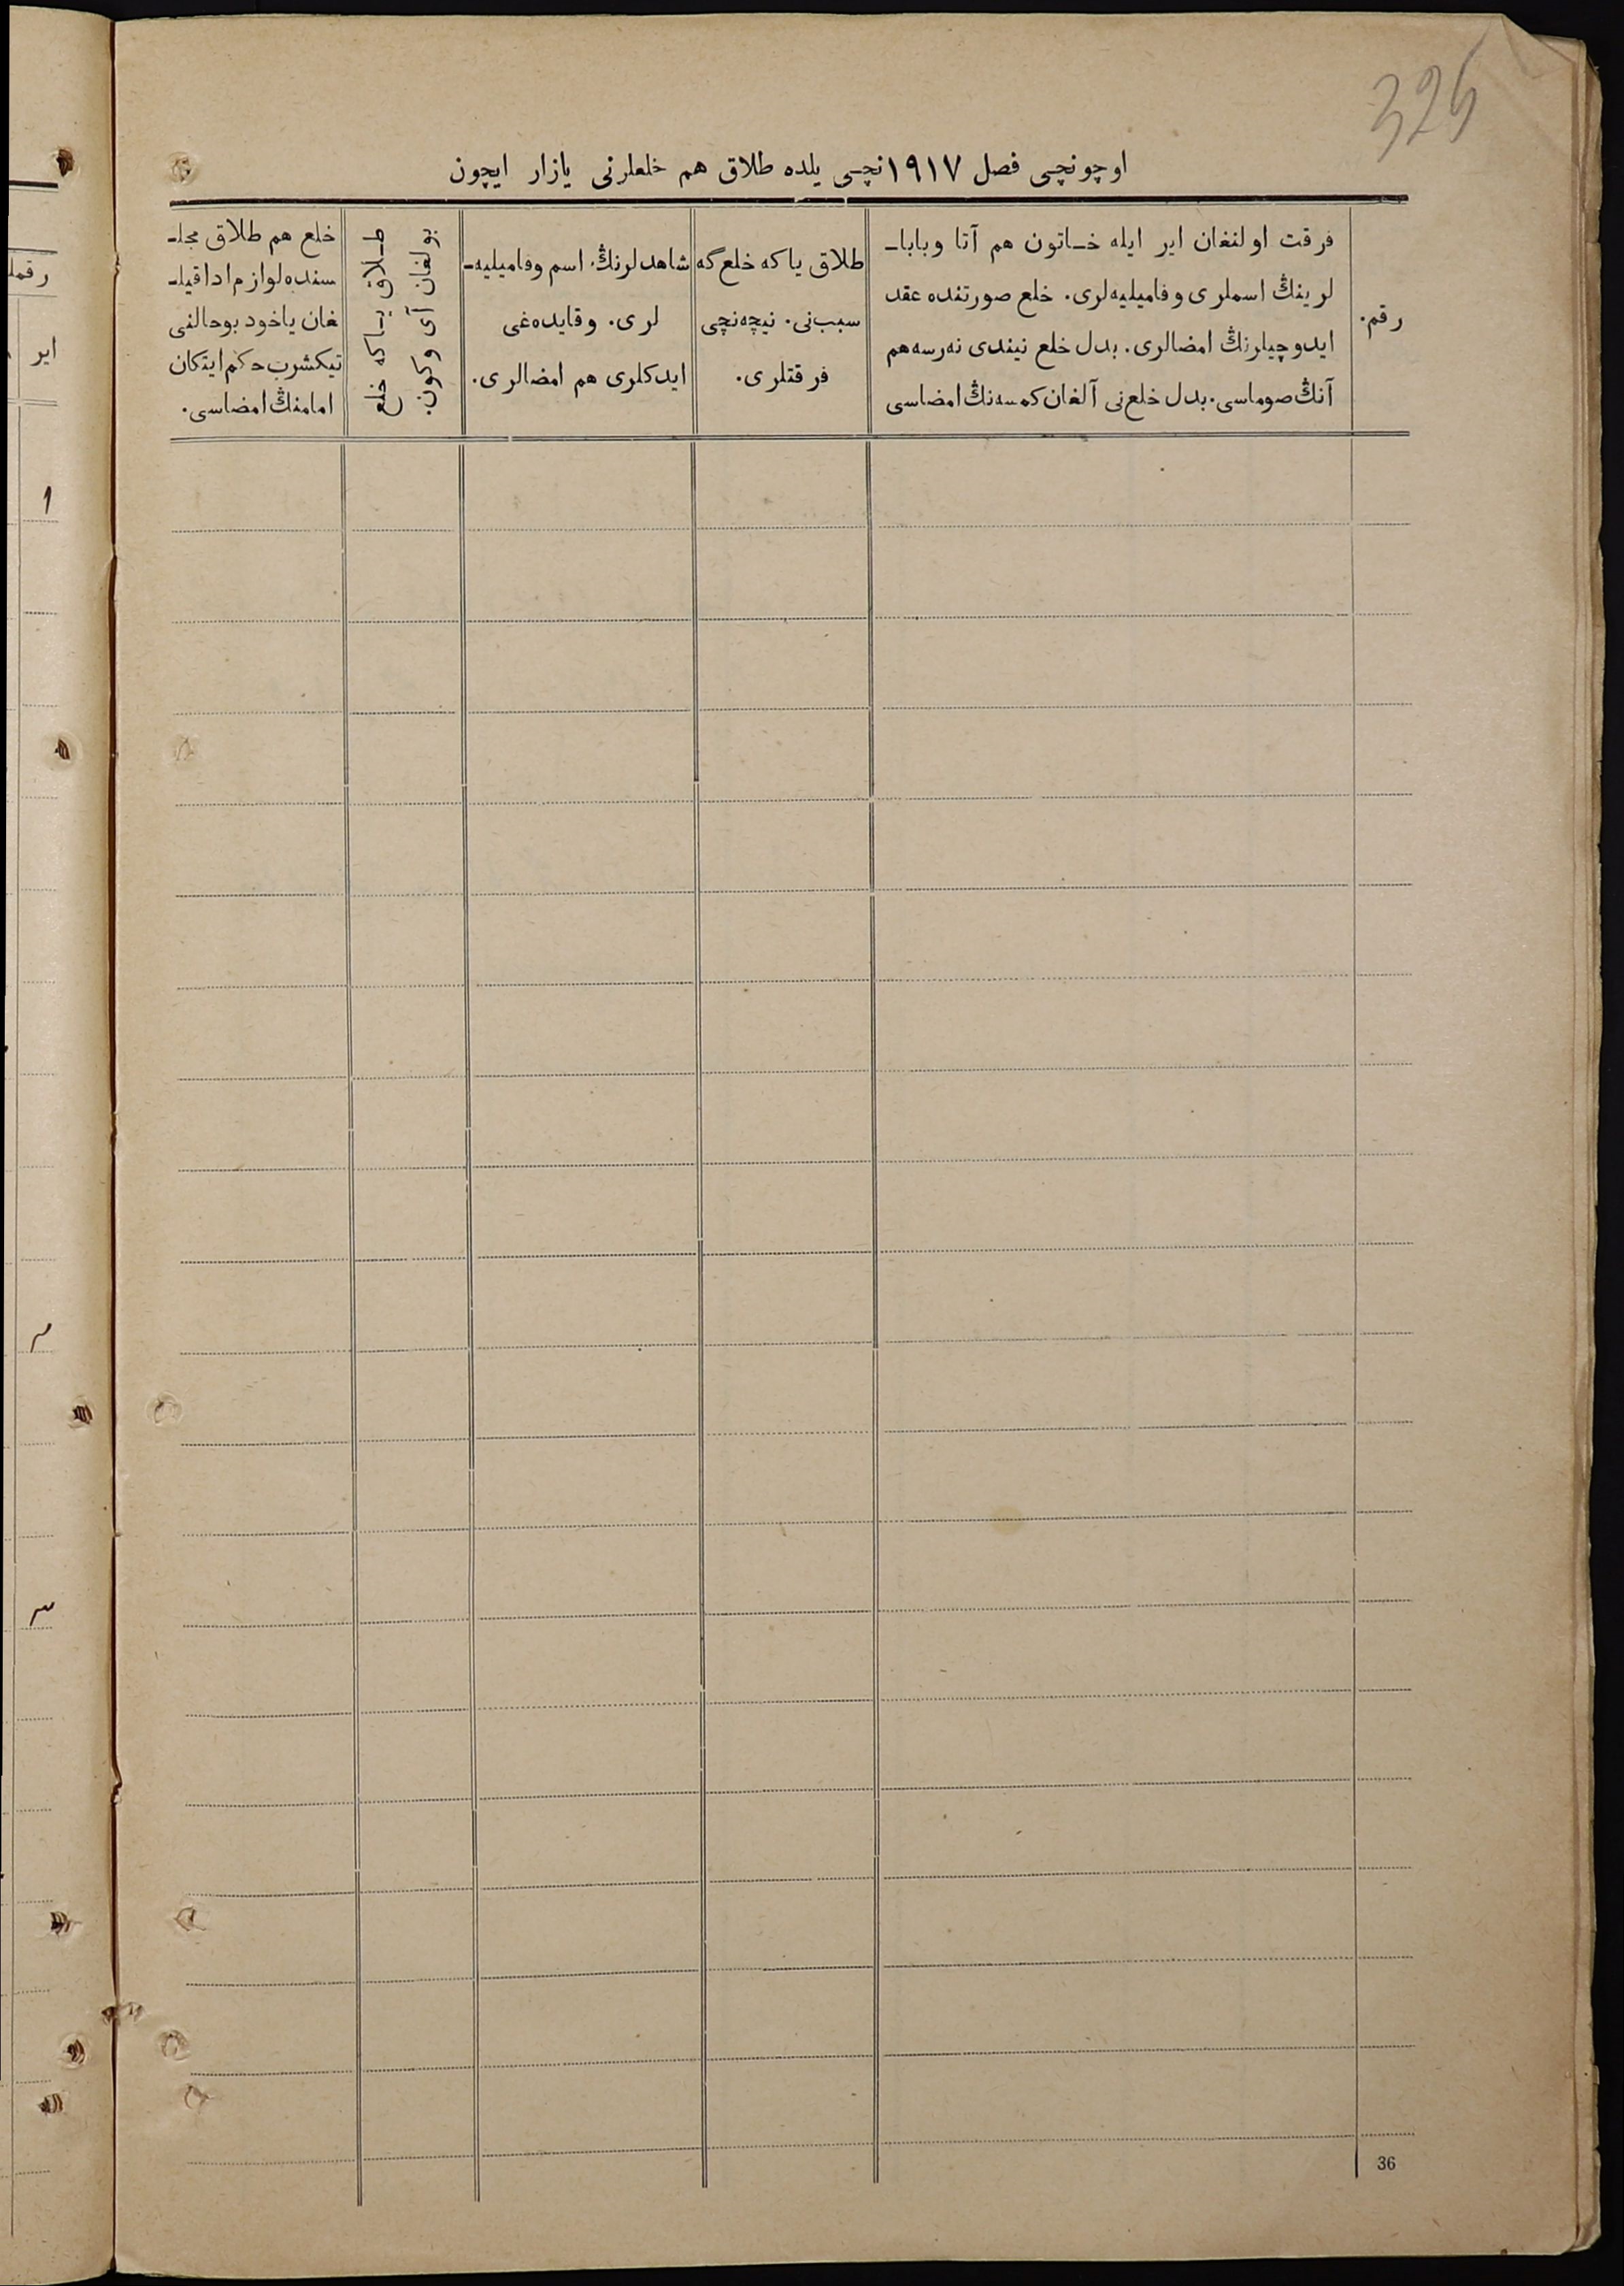 325
اوچونچی فصل ١٩١٧نچی یلده طلاق هم خلعلرنی یازار ایچون
رقم.
فرقت اولنغان ایر ایله خاتون هم آتا وبابا-
لرینڭ اسملری وفامیلیه‌لری. خلع صورتنده عقد
ایدوچیلرنڭ امضالری. بدل خلع نیندی نه‌رسه هم
آنڭ صوماسی. بدل خلع‌نی آلغان کمسه‌نڭ امضاسی
طلاق یاکه خلع‌گه
سبب‌نی. نیچه‌نچی
فرقتلری.
شاهدلرنڭ اسم وفامیلیه-
لری. وقایده‌غی
ایدکلری هم امضالری.
طلاق یاکه خلع
بولغان آی وکون.
خلع هم طلاق مجل-
سنده لوازم ادا قیل-
غان یاخود بوحالنی
تیکشرب حکم ایتکان
امامنڭ امضاسی.
ایر
١
٢
٣
36